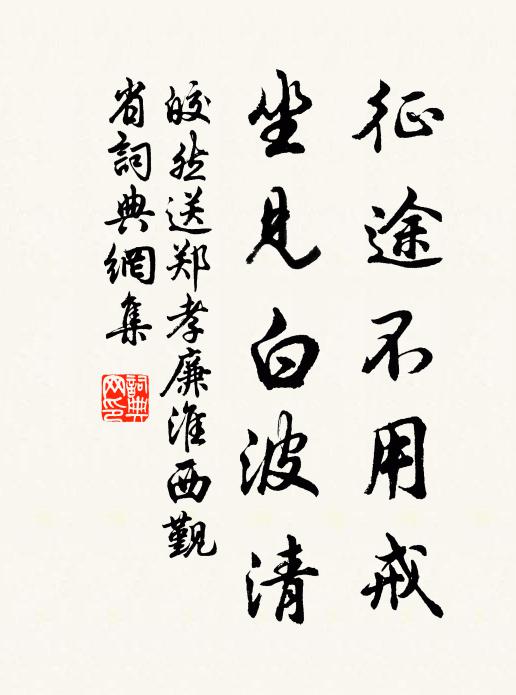 征途不用戒
坐見白波清
皎然送郑孝廉淮西觐
省詞典網集
詞典
网印